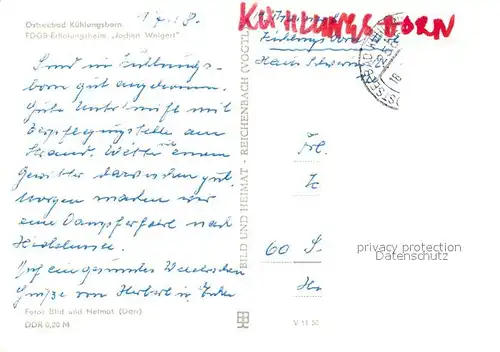 Ostseebad Kühlungsborn.
FDGB-Erholungsheim „Jochen Weigert"
17. 8.
KÜHLUNGSBORN
Sind in Kühlungs-
born gut angekommen.
Gute Unterkunft mit
Verpflegungsstelle am
Strand. Wetter einem
Gewitter dazwischen gut.
Morgen machen wir
eine Dampferfahrt nach
Hiddensee.
Auf ein gesundes Wiedersehen
Grüße von Herbert u.
Foto: Bild und Heimat (Darr)
DDR 0,20 M
BILD UND HEIMAT - REICHENBACH (VOGTL
Kühlungsborn
Haus
Frl.
60
privacy protection
Datenschutz
V 11 50